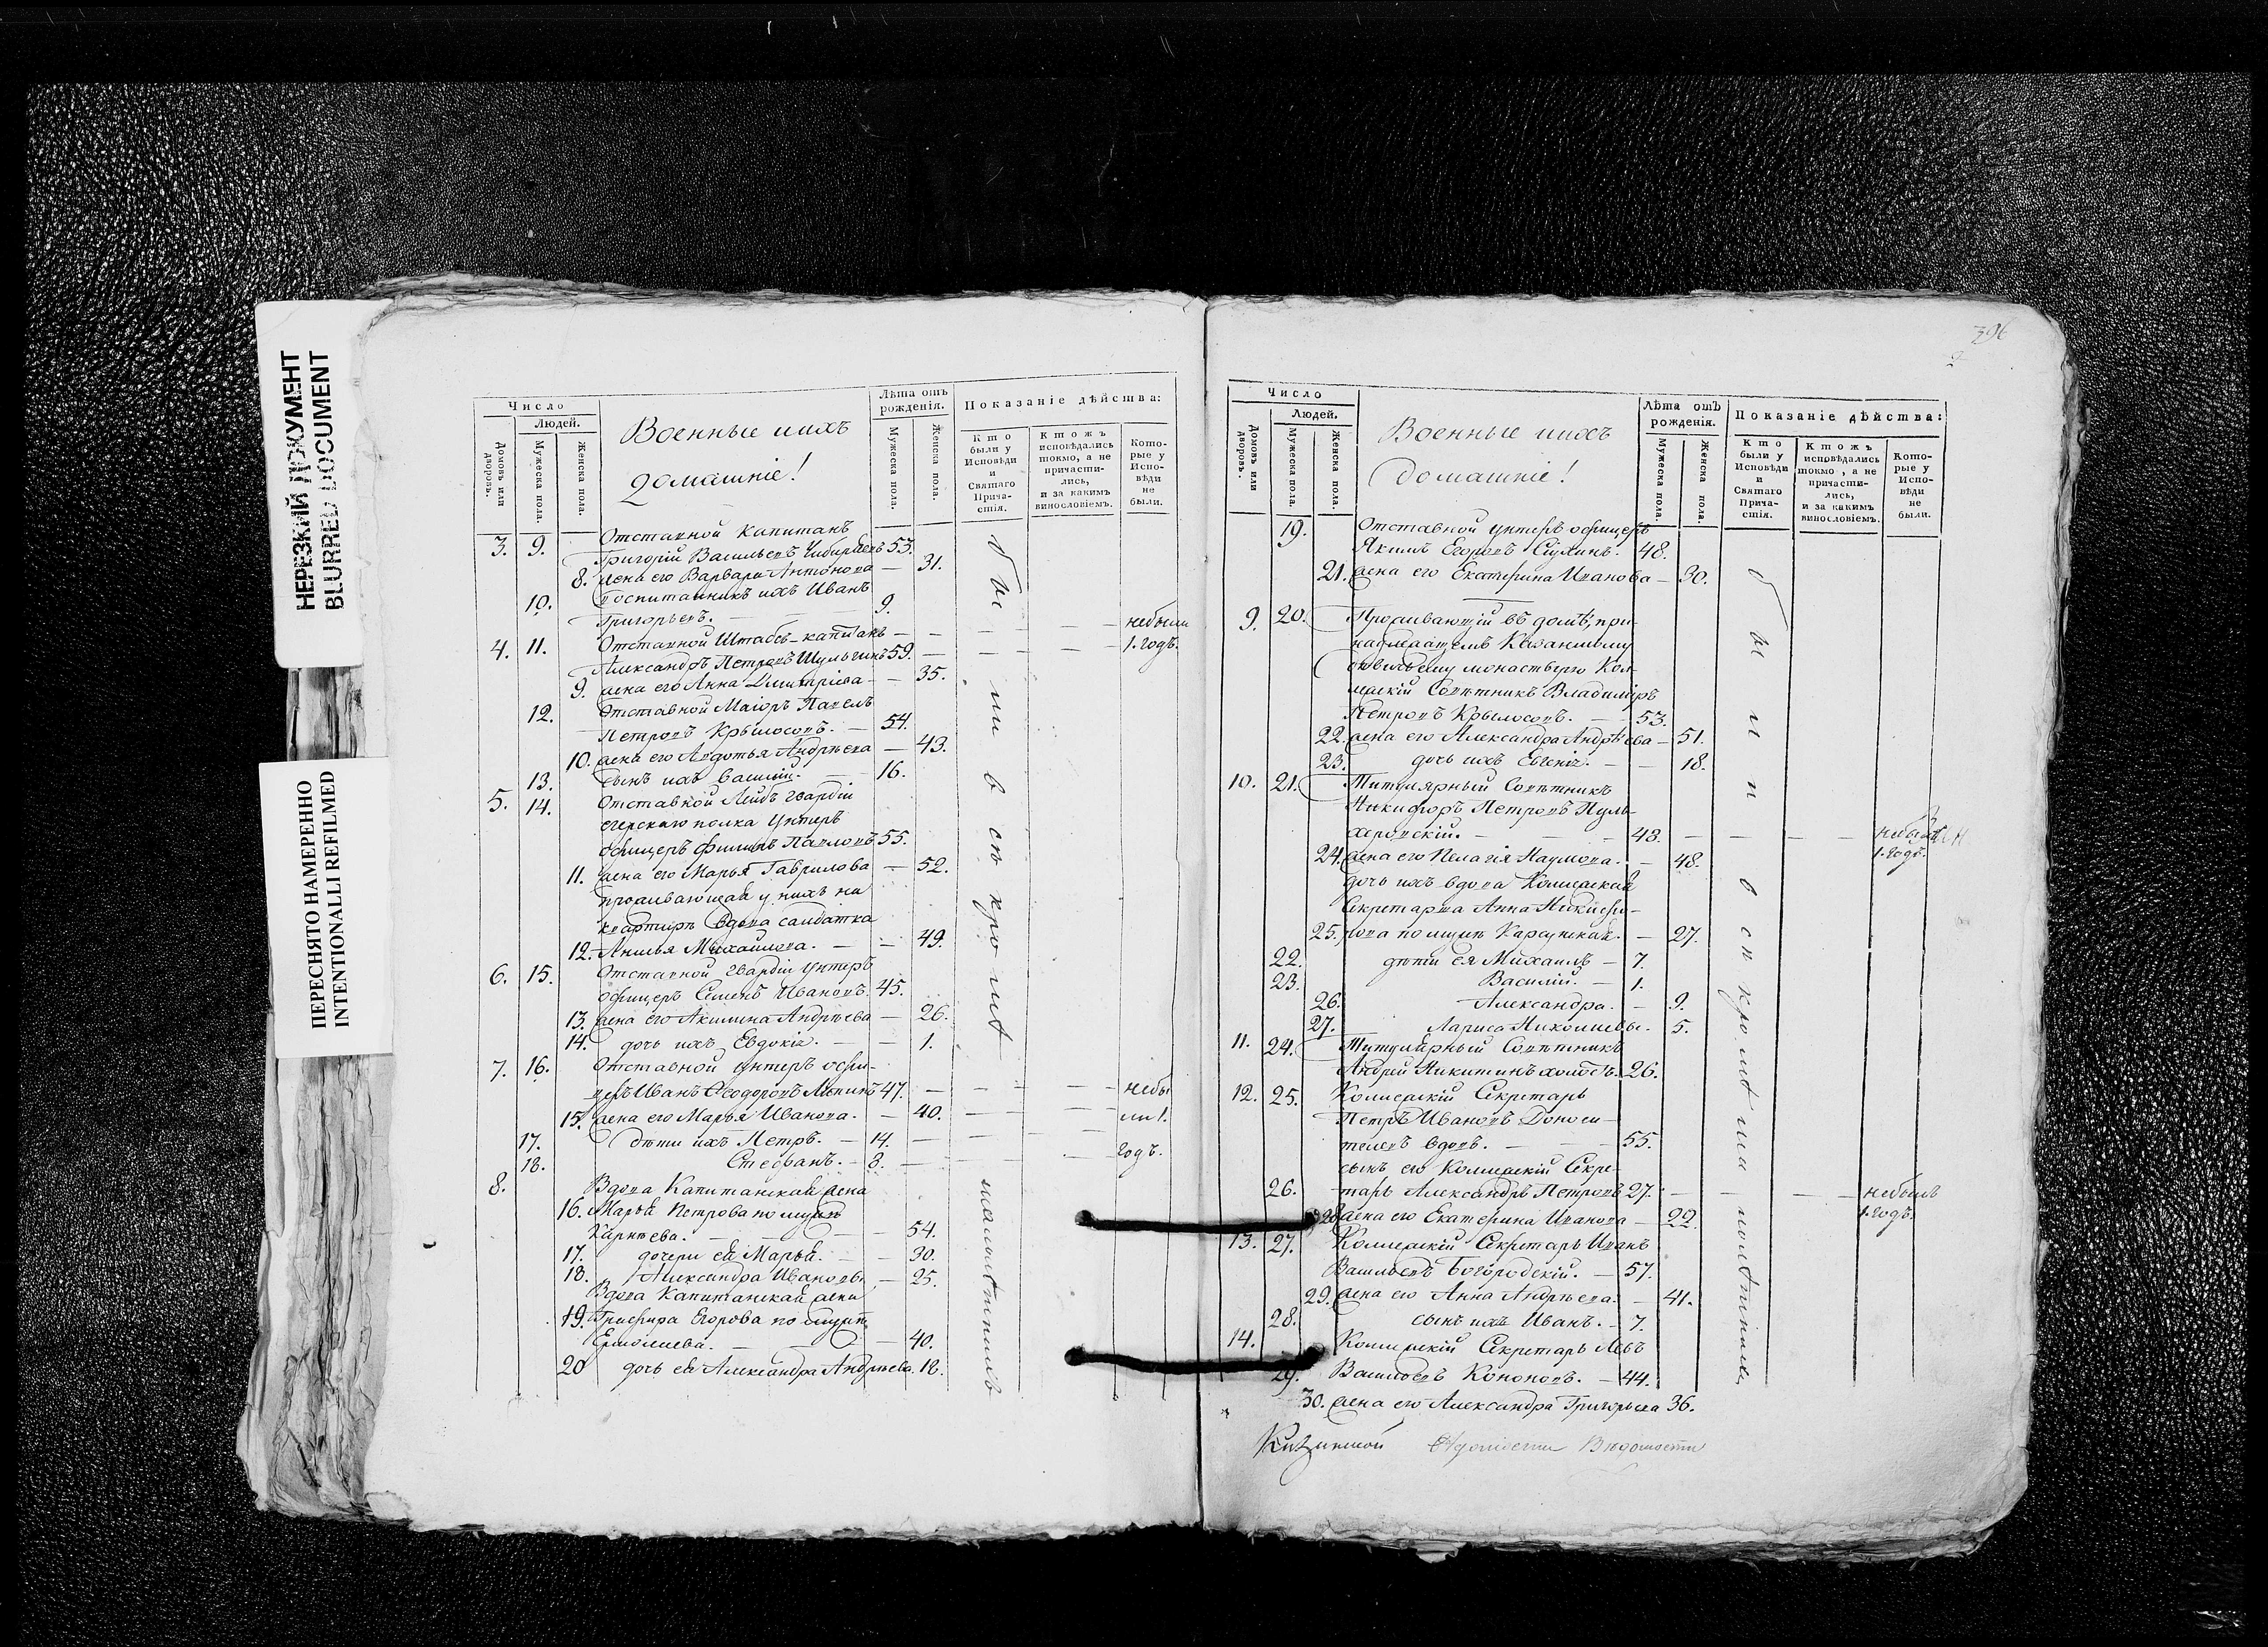 НЕРЕЗКИЙ ДОКУМЕНТ
BLURRED DOCUMENT
ПЕРЕСНЯТО НАМЕРЕННО
INTENTIONALLI REFILMED
Число
Людей.
Домовъ или дворовъ.
Мужеска пола.
Женска пола.
Военные иихъ
домашніе!
Лѣта отъ рожденія.
Мужеска пола.
Женска пола.
Показаніе дѣйства:
Кто были у Исповѣди и Святаго Прича-стія.
Ктожъ исповѣдались токмо, а не причасти-лись, и за какимъ винословіемъ.
Кото-рые у Испо-вѣди не были.
Отставной Капитанъ
3. 9. Григорій Васильевъ 53.
8. жена его Варвара Антонова — 31.
воспитанникъ ихъ Иванъ
10. Григорьевъ. 9.
Отставной Штабсъ-капитанъ — небыли
4. 11. Александръ Петровъ Шульгинъ 59. — 1. годъ.
9. жена его Анна Дмитріева — 35.
Отставной Маіоръ Павелъ
12. Петровъ Крылосовъ. — 54.
10. жена его Авдотья Андрѣева — 43.
13. сынъ ихъ Василій. 16.
5. 14. Отставной Лейбъ гвардіи
егерскаго полка Унтеръ
офицеръ Филипъ Павловъ 55.
11. жена его Марья Гаврилова — 52.
проживающая у нихъ на
квартирѣ вдова салдатка
12. Михайлова. — 49.
6. 15. Отставной гвардіи унтеръ
офицеръ Семенъ Ивановъ. 45.
13. жена его Акилина Андрѣева — 26.
14. дочь ихъ Евдокія. — 1.
7. 16. Отставной унтеръ офи-
церъ Иванъ Ѳеодоровъ 47. — небы
15. жена его Марья Иванова. — 40. — ли 1.
17. дѣти ихъ Петръ. — 14.
18. Стефанъ. — 8. — годъ.
8. Вдова Капитанская жена
16. Марья Петрова по мужѣ
54.
17. дочери ея Марья. — 30.
18. Александра Ивановы — 25.
Вдова Капитанская жена
19. Егорова по мужѣ
Ермолаева. — 40.
20 дочь ея Александра Андрѣева. 18.
были всѣ кромѣ малолѣтнихъ
396
2
Число
Людей.
Домовъ или дворовъ.
Мужеска пола.
Женска пола.
Военные иихъ
домашніе!
Лѣта отъ рожденія.
Мужеска пола.
Женска пола.
Показаніе дѣйства:
Кто были у Исповѣди и Святаго Прича-стія.
Ктожъ исповѣдались токмо, а не причасти-лись, и за какимъ винословіемъ.
Кото-рые у Испо-вѣди не были.
19. Отставной унтеръ офицеръ
Якимъ Егоровъ 48.
21. жена его Екатерина Иванова — 30.
9. 20. Проживающій въ домѣ, при-
надлежащемъ Казанскому
монастырю Кол-
лежскій Совѣтникъ Владиміръ
Петровъ Крылосовъ. — 53.
22. жена его Александра Андрѣева — 51.
23. дочь ихъ Евгенія. — 18.
10. 21. Титулярный Совѣтникъ
Никифоръ Петровъ Пуль-
херовскій. — 48. — небылъ
24. жена его Пелагія Наумова. — 48. 1. годъ.
дочь ихъ вдова Колежская
Секретарша Анна Никифо-
25. рова по мужѣ — 27.
22. дѣти ея Михаилъ — 7.
23. Василій. — 1.
26. Александра. — 9.
27. Лариса Николаевы. 5.
11. 24. Титулярный Совѣтникъ
Андрей Никитинъ 26.
12. 25. Колежскій Секретарь
Петръ Ивановъ Доноси-
телевъ вдовъ. — 55.
сынъ его Колежскій Секре-
26. тарь Александръ Петровъ 27. — небылъ
28 жена его Екатерина Иванова — 22. 1. годъ.
13. 27. Колежскій Секретарь Иванъ
Васильевъ Богородскій. — 57.
29. жена его Анна Андрѣева. — 41.
28. сынъ ихъ Иванъ. — 7.
14. Колежскій Секретарь Левъ
29. Васильевъ Кононовъ. — 44.
30. жена его Александра Григорьева 36.
были всѣ кромѣ малолѣтнихъ
Вѣдомости